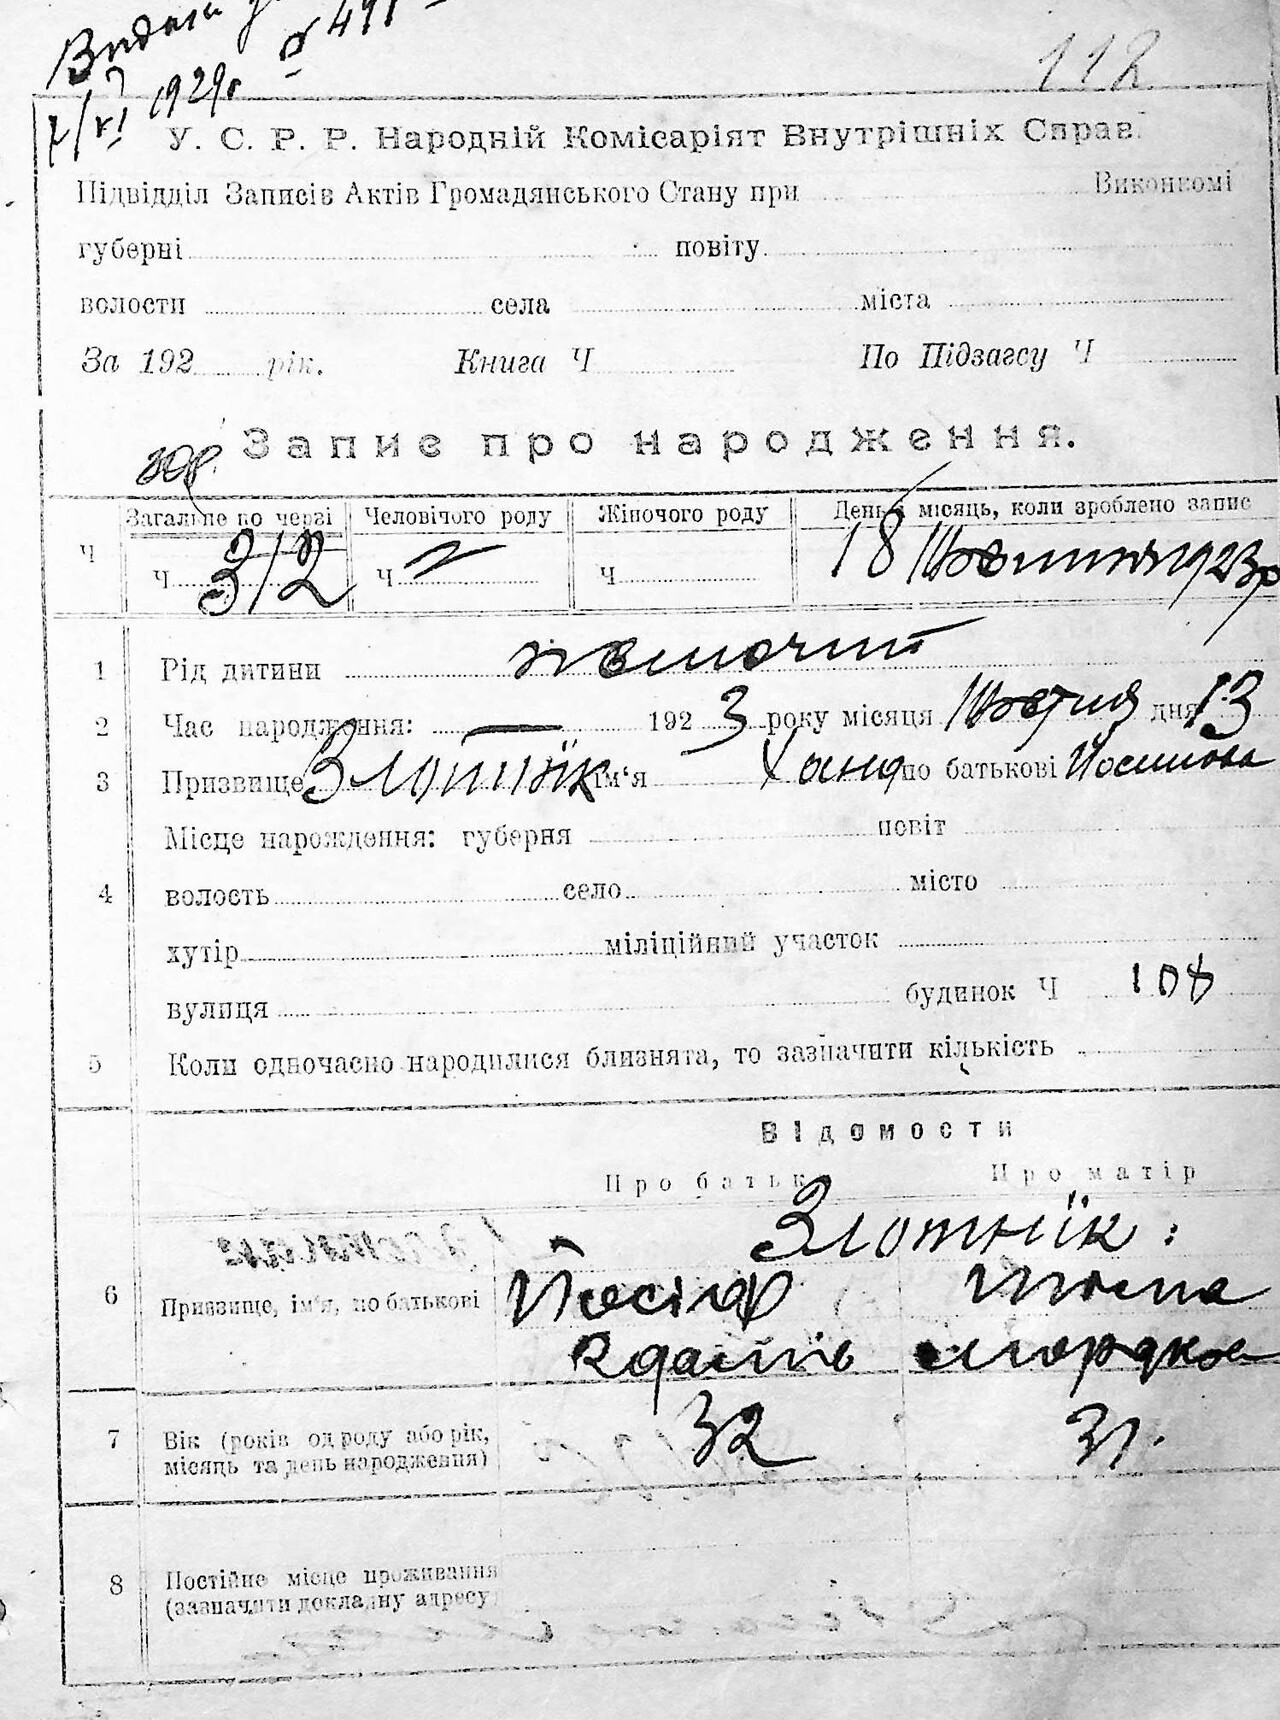 Видана
№ 491
7/VI 1929г
112
У. С. Р. Р. Народній Комісаріят Внутрішніх Справ.
Підвідділ Записів Актів Громадянського Стану при Виконкомі
губерні повіту
волости села міста
За 192 рік. Книга Ч По Підзагсу Ч
Запис про народження.
Загальне по черзі Человічого роду Жіночого роду День і місяць, коли зроблено запис
Ч Ч 312 Ч Ч 18 Жовтня 1923р
1 Рід дитини жіночий
2 Час народження: — 1923 року місяця Жовтня дня 13
3 Призвище Злотнік ім‘я Хана по батькові Йосипова
Місце народження: губерня повіт
4 волость село місто
хутір міліційний участок
вулиця будинок Ч 108
5 Коли одночасно народилися близнята, то зазначити кількість
Відомости
Про батька Про матір
Злотнік:
6 Призвище, ім‘я, по батькові Йосіф
7 Вік (років од роду або рік, 32 31.
місяць та день народження)
8 Постійне місце проживання
(зазначити докладну адресу)